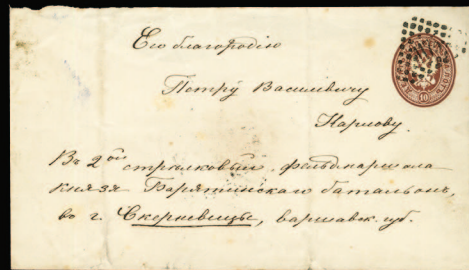 Его благородію
Петру Василiевичу
Карлову.
Въ 2ой стрѣлковый фельдмаршала
князя Барятинскаго баталіонъ,
во г. Скерневицы, варшавск. губ.
10